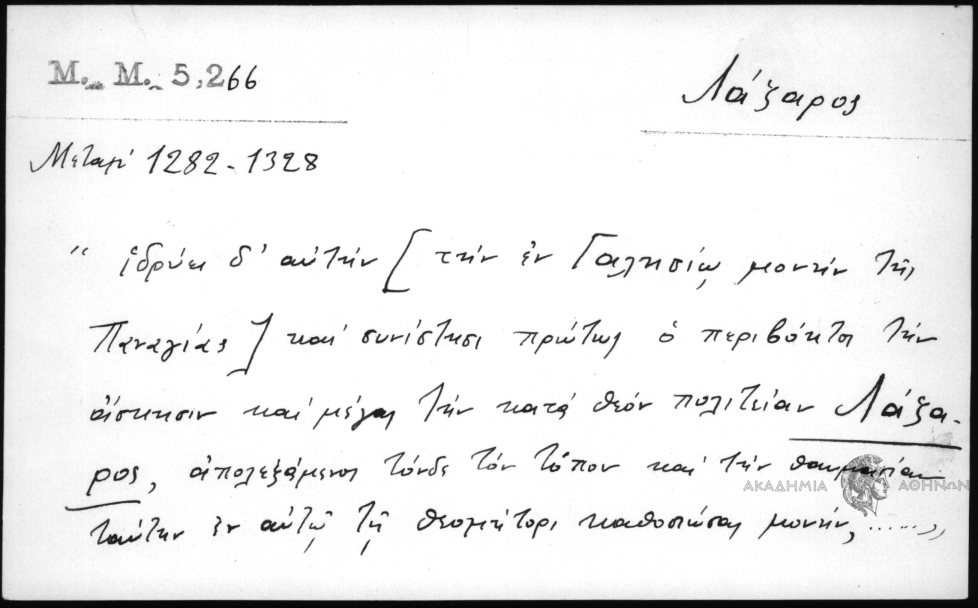 Μ. Μ. 5,266
Λάζαρος
Μεταξύ 1282-1328
“ ἱδρύει δ' αὐτήν [ τήν ἐν Γαλησίῳ μονήν τῆς
Παναγίας ] καί συνίστησι πρώτως ὁ περιβόητος τήν
ἄσκησιν καί μέγας τήν κατά θεόν πολιτείαν Λάζα-
ρος, ἀπολεξάμενος τόνδε τόν τόπον καί τήν θαυμασίαν
ταύτην ἐν αὐτῷ τῇ θεομήτορι καθοσιώσας μονήν, ......,,
ΑΚΑΔΗΜΙΑ ΑΘΗΝΩΝ